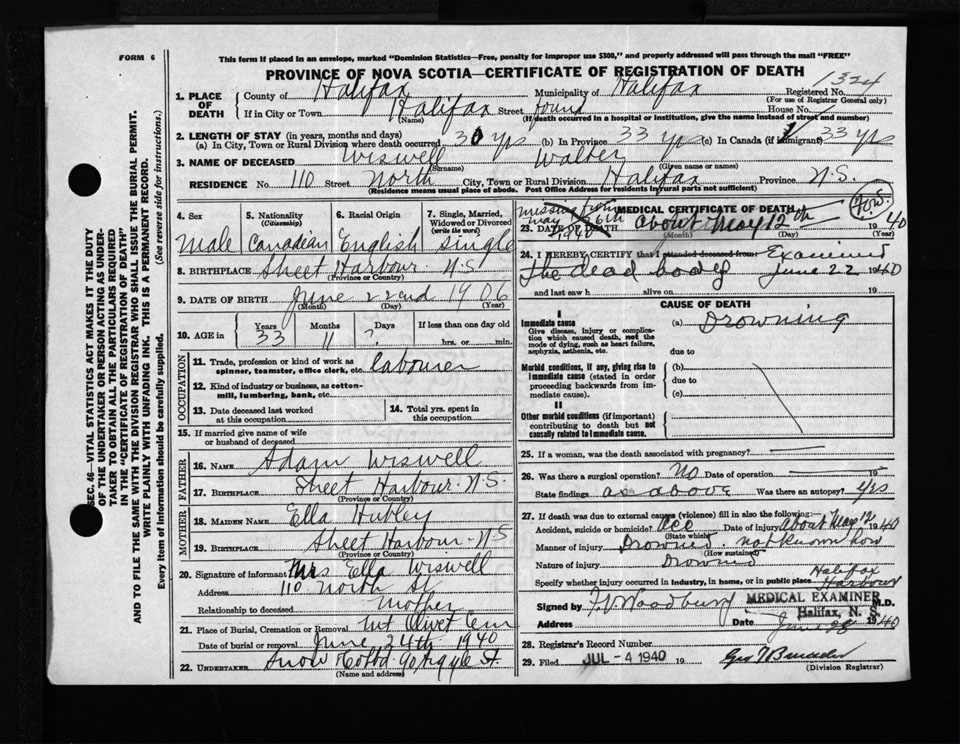 FORM 6
This form if placed in an envelope, marked "Dominion Statistics—Free, penalty for improper use $300," and properly addressed will pass through the mail "FREE"
PROVINCE OF NOVA SCOTIA—CERTIFICATE OF REGISTRATION OF DEATH
1. PLACE OF DEATH
County of Halifax Municipality of Halifax Registered No. 1324
(For use of Registrar General only)
If in City or Town Halifax Street found House No.
(Name) (If death occurred in a hospital or institution, give the name instead of street and number)
2. LENGTH OF STAY (in years, months and days)
(a) In City, Town or Rural Division where death occurred 30 yrs (b) In Province 33 yrs (c) In Canada (if immigrant) 33 yrs
3. NAME OF DECEASED Wiswell Walter
(Surname) (Given name or names)
RESIDENCE No. 110 Street North City, Town or Rural Division Halifax Province N.S.
(Residence means usual place of abode. Post Office Address for residents in rural parts not sufficient)
4. Sex Male
5. Nationality (Citizenship) Canadian
6. Racial Origin English
7. Single, Married, Widowed or Divorced (write the word) Single
8. BIRTHPLACE Sheet Harbour N.S
(Province or Country)
9. DATE OF BIRTH June 22nd 1906
(Month) (Day) (Year)
10. AGE in Years 33 Months 11 Days ? If less than one day old hrs. or min.
OCCUPATION
11. Trade, profession or kind of work as spinner, teamster, office clerk, etc. labourer
12. Kind of industry or business, as cotton-mill, lumbering, bank, etc.
13. Date deceased last worked at this occupation
14. Total yrs. spent in this occupation
15. If married give name of wife or husband of deceased
FATHER
16. NAME Adam Wiswell
17. BIRTHPLACE Sheet Harbour N.S.
(Province or Country)
MOTHER
18. MAIDEN NAME Ella Hubley
19. BIRTHPLACE Sheet Harbour - N.S
(Province or Country)
20. Signature of informant Mrs Ella Wiswell
Address 110 North St
Relationship to deceased Mother
21. Place of Burial, Cremation or Removal Mt Olivet Cem
Date of burial or removal June 24th 1940
22. UNDERTAKER Snow Co Ltd. 90 Argyle St.
(Name and address)
MEDICAL CERTIFICATE OF DEATH
missing from May 6th 1940
23. DATE OF DEATH about May 12th 1940
(Month) (Day) (Year)
24. I HEREBY CERTIFY that I attended deceased from Examined
The dead body June 22 1940
and last saw h alive on 19
CAUSE OF DEATH
I
Immediate cause
Give disease, injury or complication which caused death, not the mode of dying, such as heart failure, asphyxia, asthenia, etc.
(a) Drowning
due to
Morbid conditions, if any, giving rise to immediate cause (stated in order proceeding backwards from immediate cause).
(b)
due to
(c)
II
Other morbid conditions (if important) contributing to death but not causally related to immediate cause.
25. If a woman, was the death associated with pregnancy?
26. Was there a surgical operation? No Date of operation 19
State findings as above Was there an autopsy? Yes
27. If death was due to external causes (violence) fill in also the following:
Accident, suicide or homicide? Acc Date of injury About May 12 1940
(State which)
Manner of injury Drowned. not known how
(How sustained)
Nature of injury Drowned
Specify whether injury occurred in industry, in home, or in public place Halifax Harbour
Signed by F V Woodbury MEDICAL EXAMINER M.D.
Halifax, N. S.
Address Date June 28 1940
28. Registrar's Record Number
29. Filed JUL - 4 1940 19
(Division Registrar)
SEC. 46—VITAL STATISTICS ACT MAKES IT THE DUTY
OF THE UNDERTAKER OR PERSON ACTING AS UNDER-
TAKER TO OBTAIN ALL THE PARTICULARS REQUIRED
IN THE "CERTIFICATE OF REGISTRATION OF DEATH"
AND TO FILE THE SAME WITH THE DIVISION REGISTRAR WHO SHALL ISSUE THE BURIAL PERMIT.
WRITE PLAINLY WITH UNFADING INK. THIS IS A PERMANENT RECORD.
Every item of information should be carefully supplied. (See reverse side for instructions.)